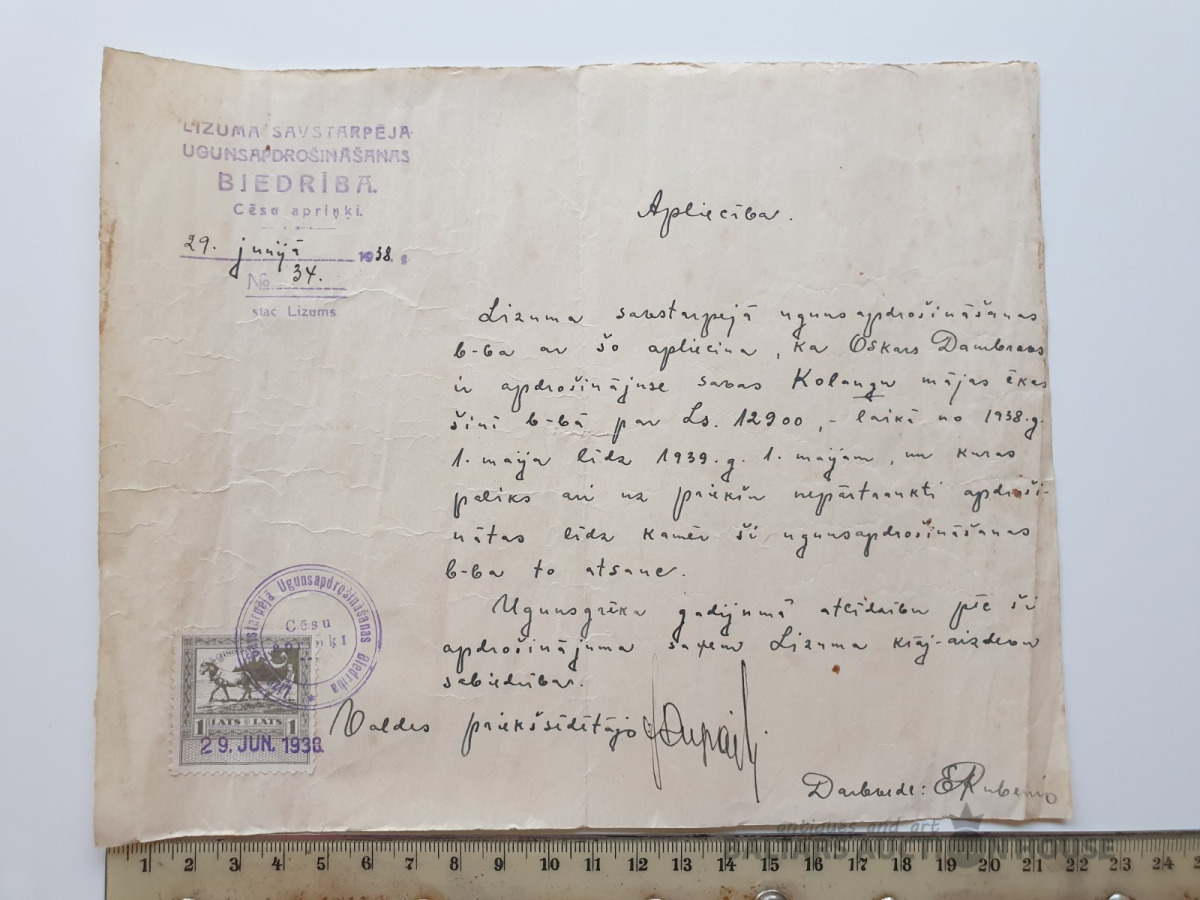 LIZUMA SAVSTARPĒJA
UGUNSAPDROŠINĀŠANAS
BIEDRĪBA.
Cēsu apriņķi.
29. junijā 1938.
No 34.
stac Lizums
Apliecība.
Lizuma savstarpejā ugunsapdrošināšanas
b-ba ar šo apliecina, ka Oskars Dambravs
ir apdrošinājuse savas Kolangu mājas ēkas
šinī b-bā par Ls. 12900,- laikā no 1938.g.
1. maija līdz 1939.g. 1. maijam, un kuras
paliks arī uz priekšu nepārtraukti apdroši-
nātas līdz kamēr šī ugunsapdrošināšanas
b-ba to atsauc.
Ugunsgrēka gadijumā atlīdzību pēc šī
apdrošinājuma saņem Lizuma krāj-aizdevu
sabiedrība.
Valdes priekšsēdētājs
Darbvede: ERubenis
Lizuma Savstarpējā Ugunsapdrošināšanas Biedrība
Cēsu
1 LATS LATS 1
29. JUN. 1938.
antiques and art
BALTARS AUCTION HOUSE
1 2 3 4 5 6 7 8 9 10 11 12 13 14 15 16 17 18 19 20 21 22 23 24